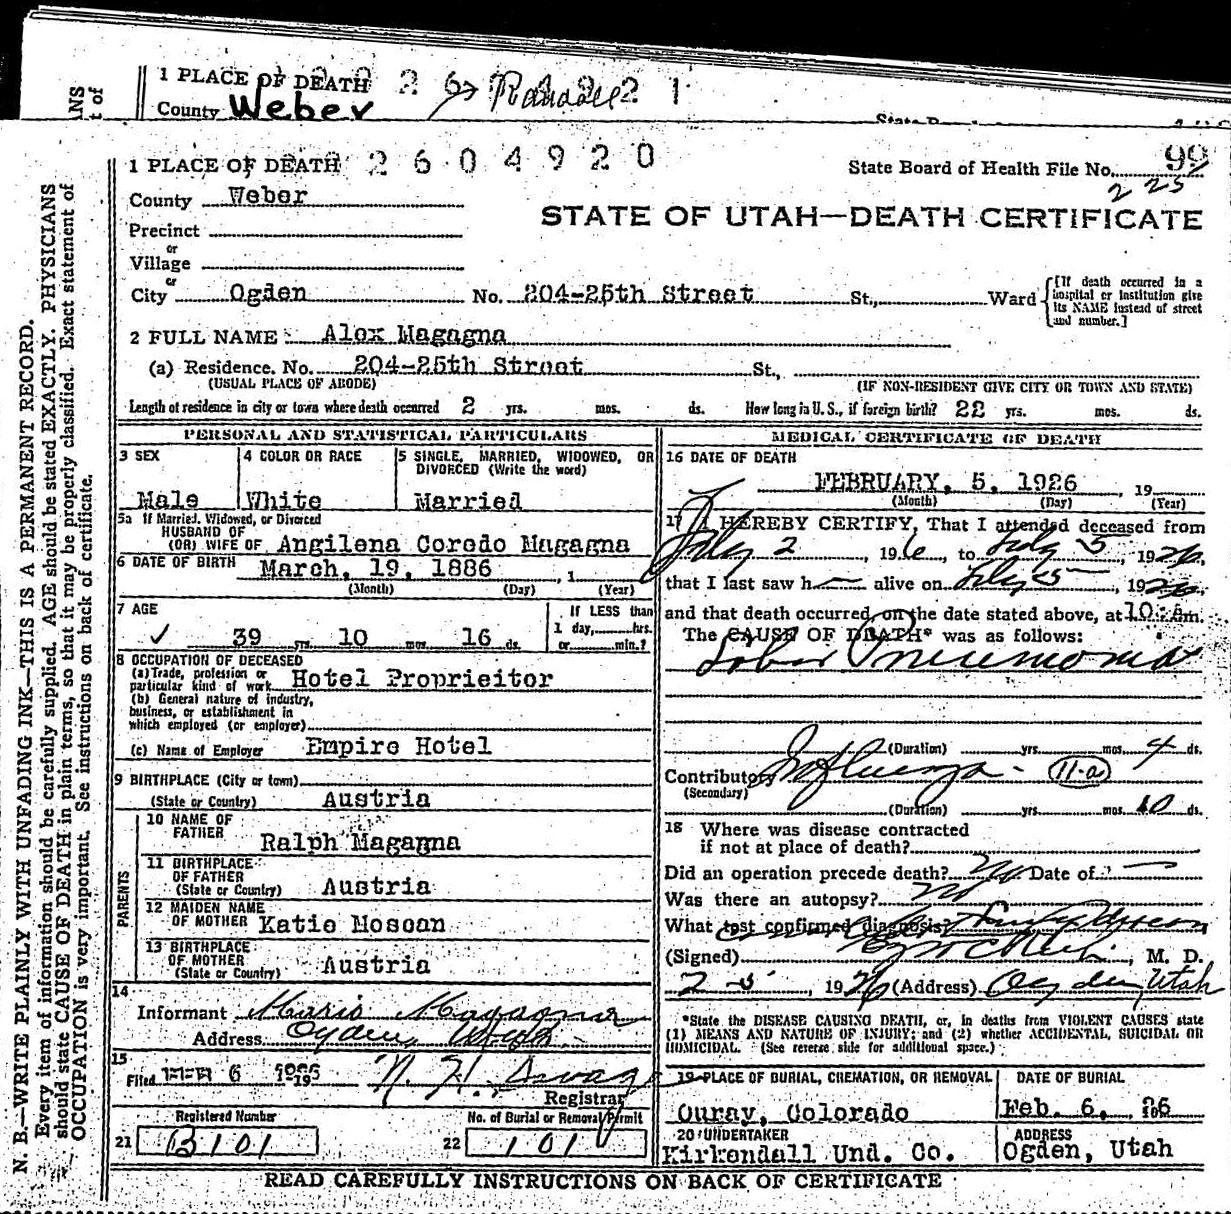 1 PLACE OF DEATH
County Weber
1 PLACE OF DEATH 2604920
State Board of Health File No. 99
225
County Weber
STATE OF UTAH—DEATH CERTIFICATE
Precinct
or
Village
or
City Ogden No. 204-25th Street St., Ward
[If death occurred in a hospital or institution give its NAME instead of street and number.]
2 FULL NAME Alex Magagna
(a) Residence. No. 204-25th Street St.,
(USUAL PLACE OF ABODE) (IF NON-RESIDENT GIVE CITY OR TOWN AND STATE)
Length of residence in city or town where death occurred 2 yrs. mos. ds. How long in U. S., if foreign birth? 22 yrs. mos. ds.
PERSONAL AND STATISTICAL PARTICULARS
3 SEX
Male
4 COLOR OR RACE
White
5 SINGLE, MARRIED, WIDOWED, OR DIVORCED (Write the word)
Married
5a If Married, Widowed, or Divorced
HUSBAND OF
(OR) WIFE OF Angilena Coredo Magagna
6 DATE OF BIRTH March, 19, 1886 , 1
(Month) (Day) (Year)
7 AGE
✓ 39 yrs. 10 mos. 16 ds.
If LESS than
1 day, hrs.
or min.?
8 OCCUPATION OF DECEASED
(a) Trade, profession or
particular kind of work Hotel Proprieitor
(b) General nature of industry,
business, or establishment in
which employed (or employer)
(c) Name of Employer Empire Hotel
9 BIRTHPLACE (City or town)
(State or Country) Austria
PARENTS
10 NAME OF
FATHER Ralph Magagna
11 BIRTHPLACE
OF FATHER
(State or Country) Austria
12 MAIDEN NAME
OF MOTHER Katie
13 BIRTHPLACE
OF MOTHER
(State or Country) Austria
14
Informant Mario Magagna
Address Ogden Utah
15
Filed FEB 6 1926
Registrar
Registered Number
21 B101
No. of Burial or Removal Permit
22 101
MEDICAL CERTIFICATE OF DEATH
16 DATE OF DEATH
FEBRUARY, 5, 1926 , 19
(Month) (Day) (Year)
17 I HEREBY CERTIFY, That I attended deceased from
2 , 19 , to 5 , 1926,
that I last saw h alive on 5 , 1926
and that death occurred, on the date stated above, at 10 m.
The CAUSE OF DEATH* was as follows:
Lobar Pneumonia
(Duration) yrs. mos. 4 ds.
Contributory Influenza 11-a
(Secondary)
(Duration) yrs. mos. 10 ds.
18 Where was disease contracted
if not at place of death?
Did an operation precede death? No Date of
Was there an autopsy? No
What test confirmed diagnosis?
(Signed) , M. D.
2-5 , 1926 (Address) Ogden, Utah
*State the DISEASE CAUSING DEATH, or, in deaths from VIOLENT CAUSES state
(1) MEANS AND NATURE OF INJURY; and (2) whether ACCIDENTAL, SUICIDAL OR
HOMICIDAL. (See reverse side for additional space.)
19 PLACE OF BURIAL, CREMATION, OR REMOVAL
Ouray, Colorado
DATE OF BURIAL
Feb. 6, 26
20 UNDERTAKER
Kirkendall Und. Co.
ADDRESS
Ogden, Utah
READ CAREFULLY INSTRUCTIONS ON BACK OF CERTIFICATE
N. B.—WRITE PLAINLY WITH UNFADING INK—THIS IS A PERMANENT RECORD.
Every item of information should be carefully supplied. AGE should be stated EXACTLY. PHYSICIANS
should state CAUSE OF DEATH in plain terms, so that it may be properly classified. Exact statement of
OCCUPATION is very important. See instructions on back of certificate.